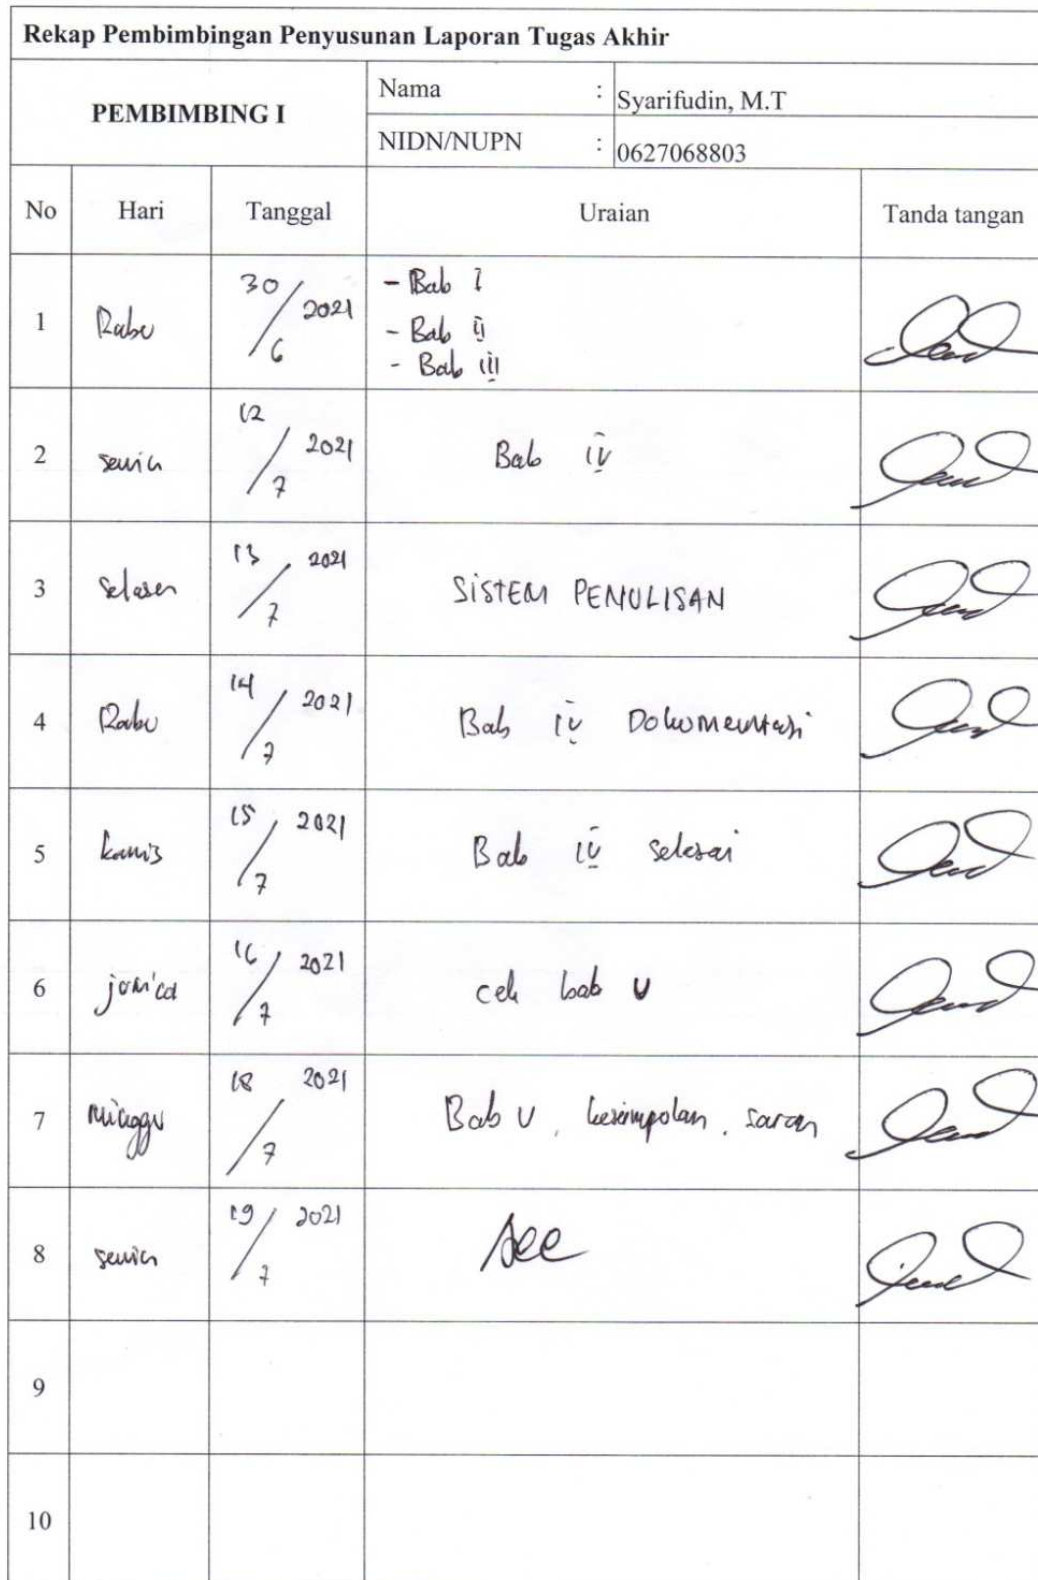 Rekap Pembimbingan Penyusunan Laporan Tugas Akhir
PEMBIMBING I
Nama : Syarifudin, M.T
NIDN/NUPN : 0627068803
No Hari Tanggal Uraian Tanda tangan
1 Rabu 30/6 2021
- Bab I
- Bab II
- Bab III
2 senin 12/7 2021 Bab IV
3 selasa 13/7 2021 SISTEM PENULISAN
4 Rabu 14/7 2021 Bab IV Dokumentasi
5 kamis 15/7 2021 Bab IV selesai
6 jum'at 16/7 2021 cek bab V
7 minggu 18/7 2021 Bab V, kesimpulan, saran
8 senin 19/7 2021 Acc
9
10